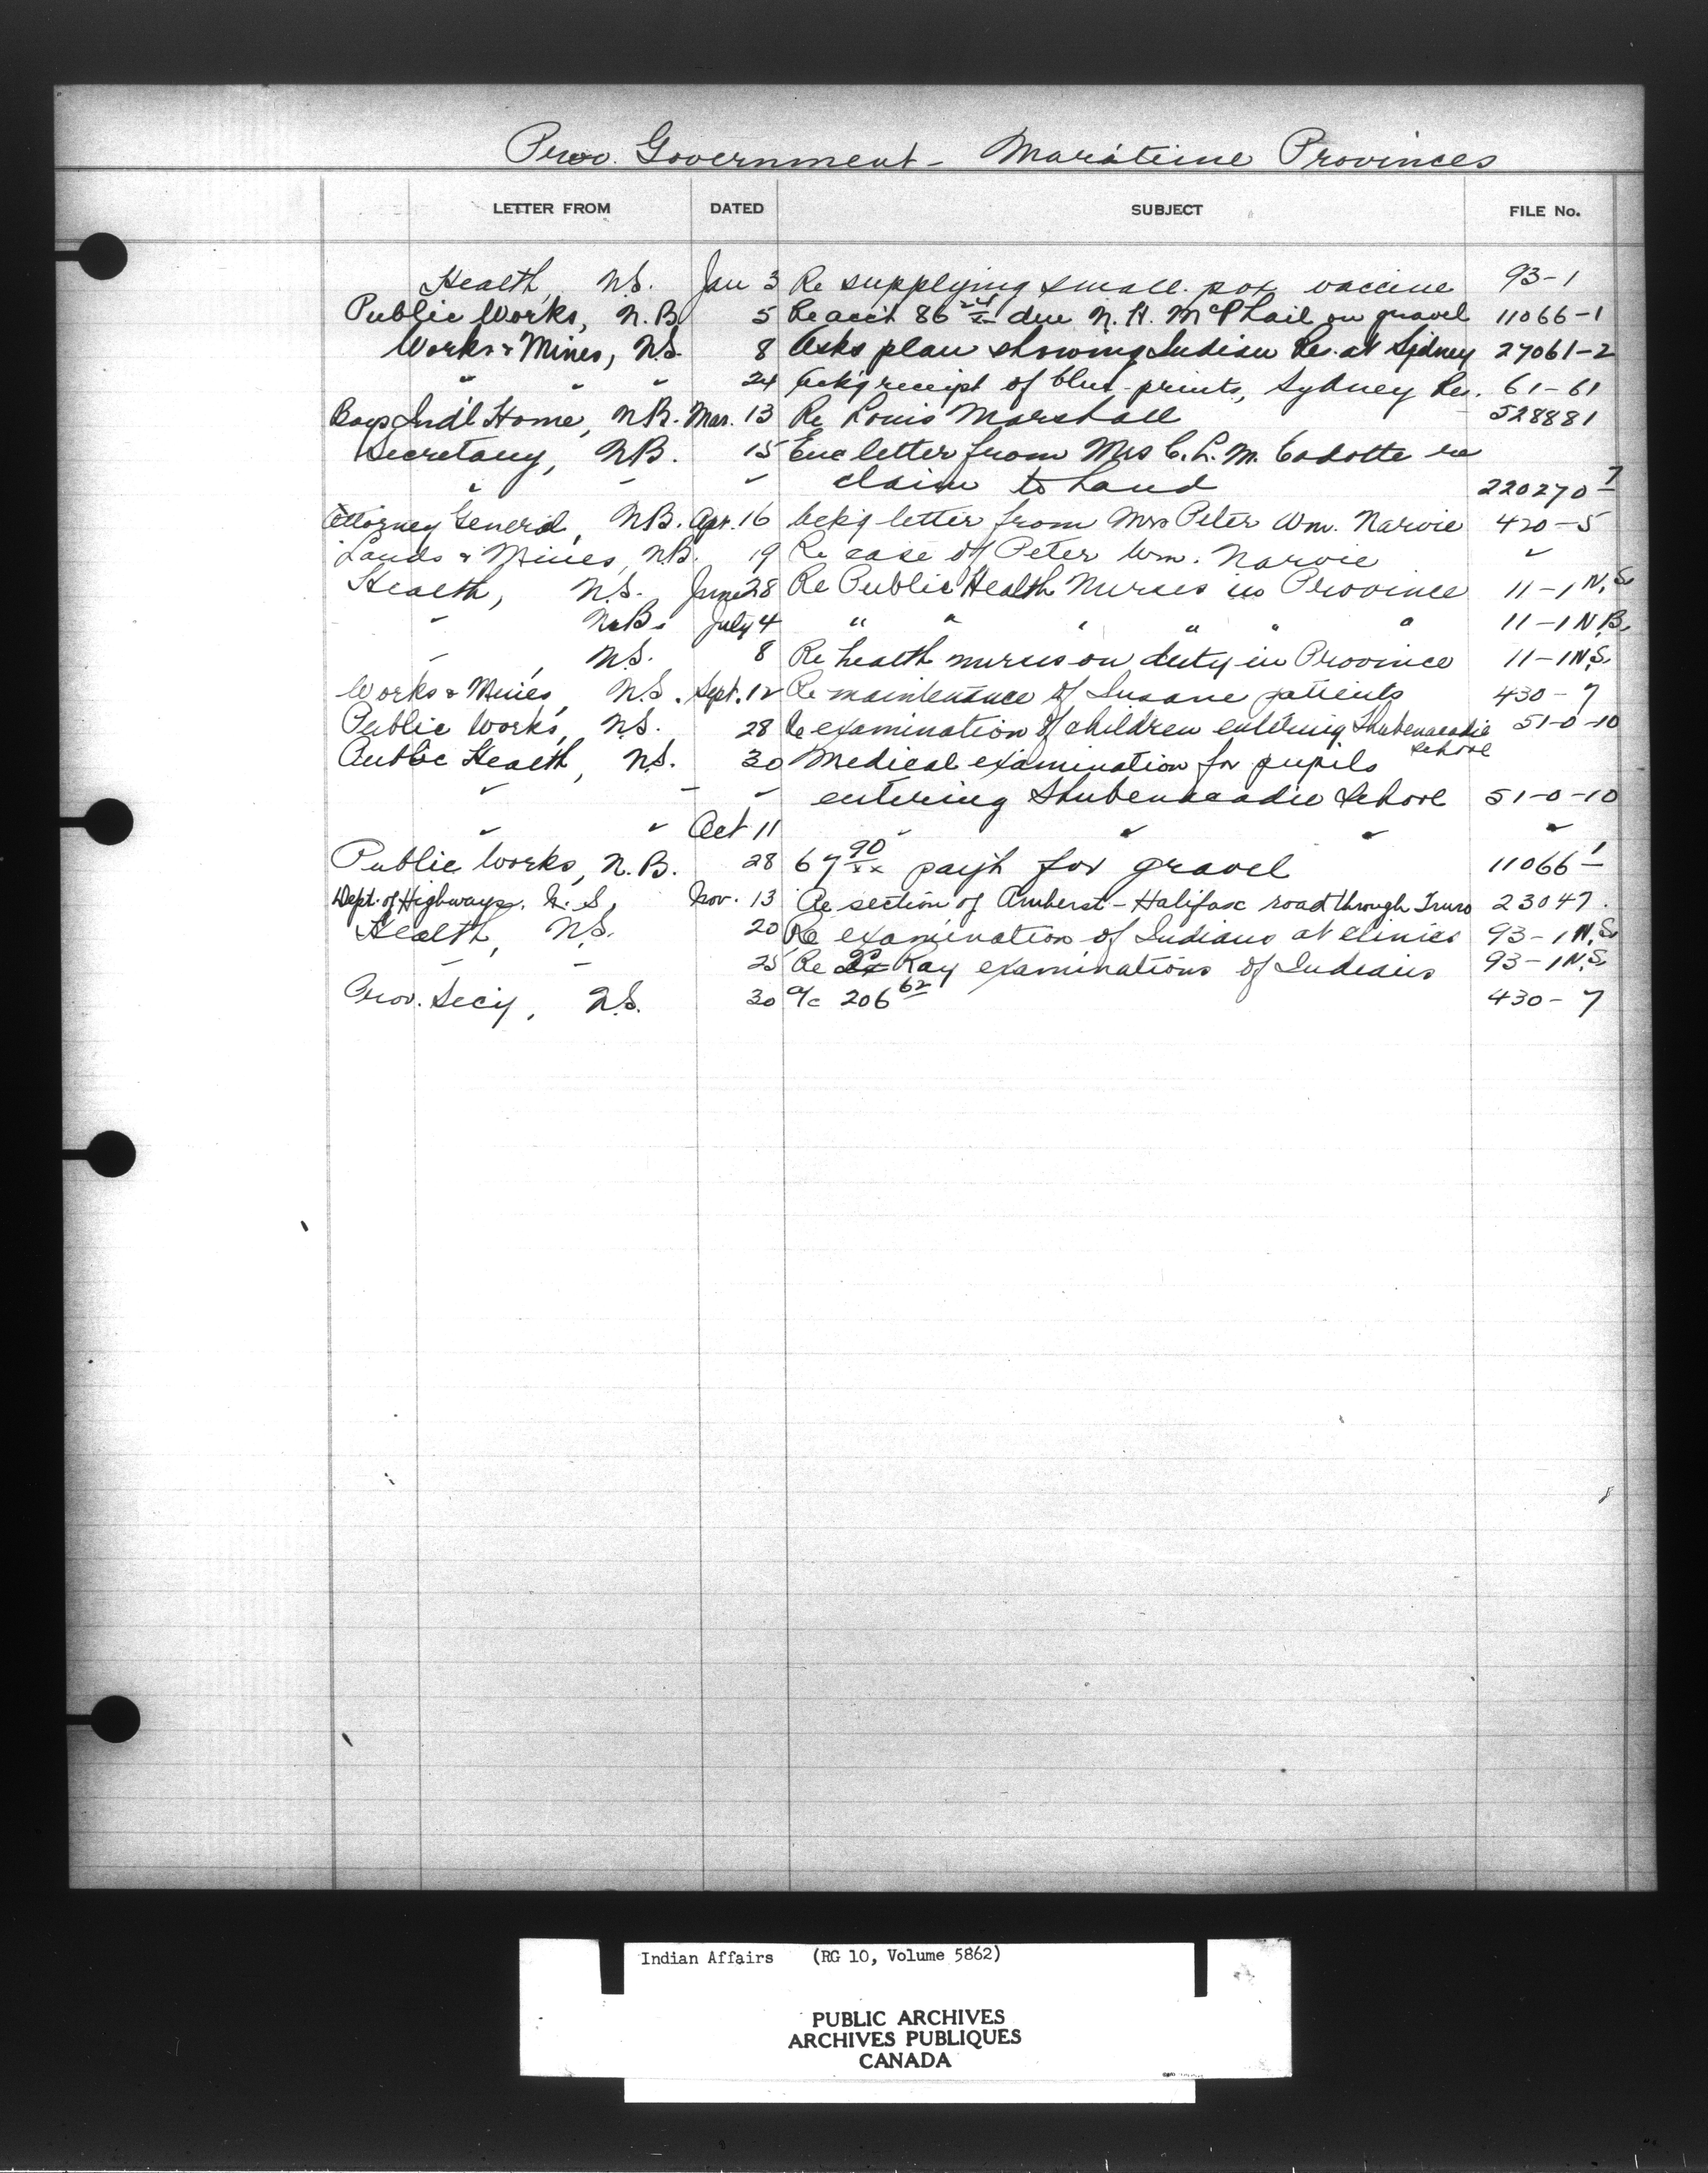 Prov. Government - Maratime Provinces
LETTER FROM DATED SUBJECT FILE No.
Health, N.S. Jan 3 Re supplying small pox vaccine 93-1
Public Works, N.B. 5 Re acct 86 24/xx due N. H. McPhail on gravel 11066-1
Works & Mines, N.S. 8 Asks plan showing Indian Res. at Sydney 27061-2
" " " 24 Ack'g receipt of blue-prints, Sydney Res. 61-61
Boys Ind'l Home, N.B. Mar. 13 Re Louis Marshall 528881
Secretary, N.B. 15 Enc letter from Mrs C. L. M. Cadotte re
" " " claim to land 220270-7
Attorney General, N.B. Apr. 16 Ack'g letter from Mrs Peter Wm. Narvie 420-5
Lands & Mines, N.B. 19 Re case of Peter Wm. Narvie "
Health, N.S. June 28 Re Public Health Nurses in Province 11-1 N.S.
" N.B. July 4 " " " " " " 11-1 N.B.
" , N.S. 8 Re health nurses on duty in Province 11-1 N.S.
Works & Mines, N.S. Sept. 12 Re maintenance of Insane patients 430-7
Public Works, N.S. 28 Re examination of children entering Shubenacadie School 51-0-10
Public Health, N.S. 30 Medical examination for pupils
" " " entering Shubenacadie School 51-0-10
" " Oct 11 " " " "
Public Works, N.B. 28 67 90/xx pay't for gravel 11066-1
Dept. of Highways, N.S. Nov. 13 Re section of Amherst-Halifax road through Truro 23047.
Health, N.S. 20 Re examination of Indians at clinics 93-1 N.S.
" " 25 Re Ray examinations of Indians 93-1 N.S.
Prov. Sec'y, N.S. 30 a/c 206 62 430-7
Indian Affairs (RG 10, Volume 5862)
PUBLIC ARCHIVES
ARCHIVES PUBLIQUES
CANADA